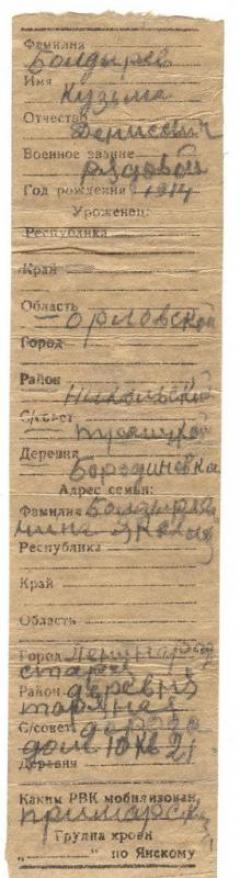 Фамилия
Болдырев
Имя
Кузьма
Отчество
Денисович
Военное звание
рядовой
Год рождения 1914
Уроженец:
Республика
Край
Область
Орловской
Город
Район
Никольской
С/совет
Деревня
Бородиневка
Адрес семьи:
Фамилия
Республика
Край
Область
Город Ленинград
старая
Район деревня
С/совет дорога
дом 10 кв 21
Деревня
Каким РВК мобилизован
приморск
Группа крови
„ “ по Янскому